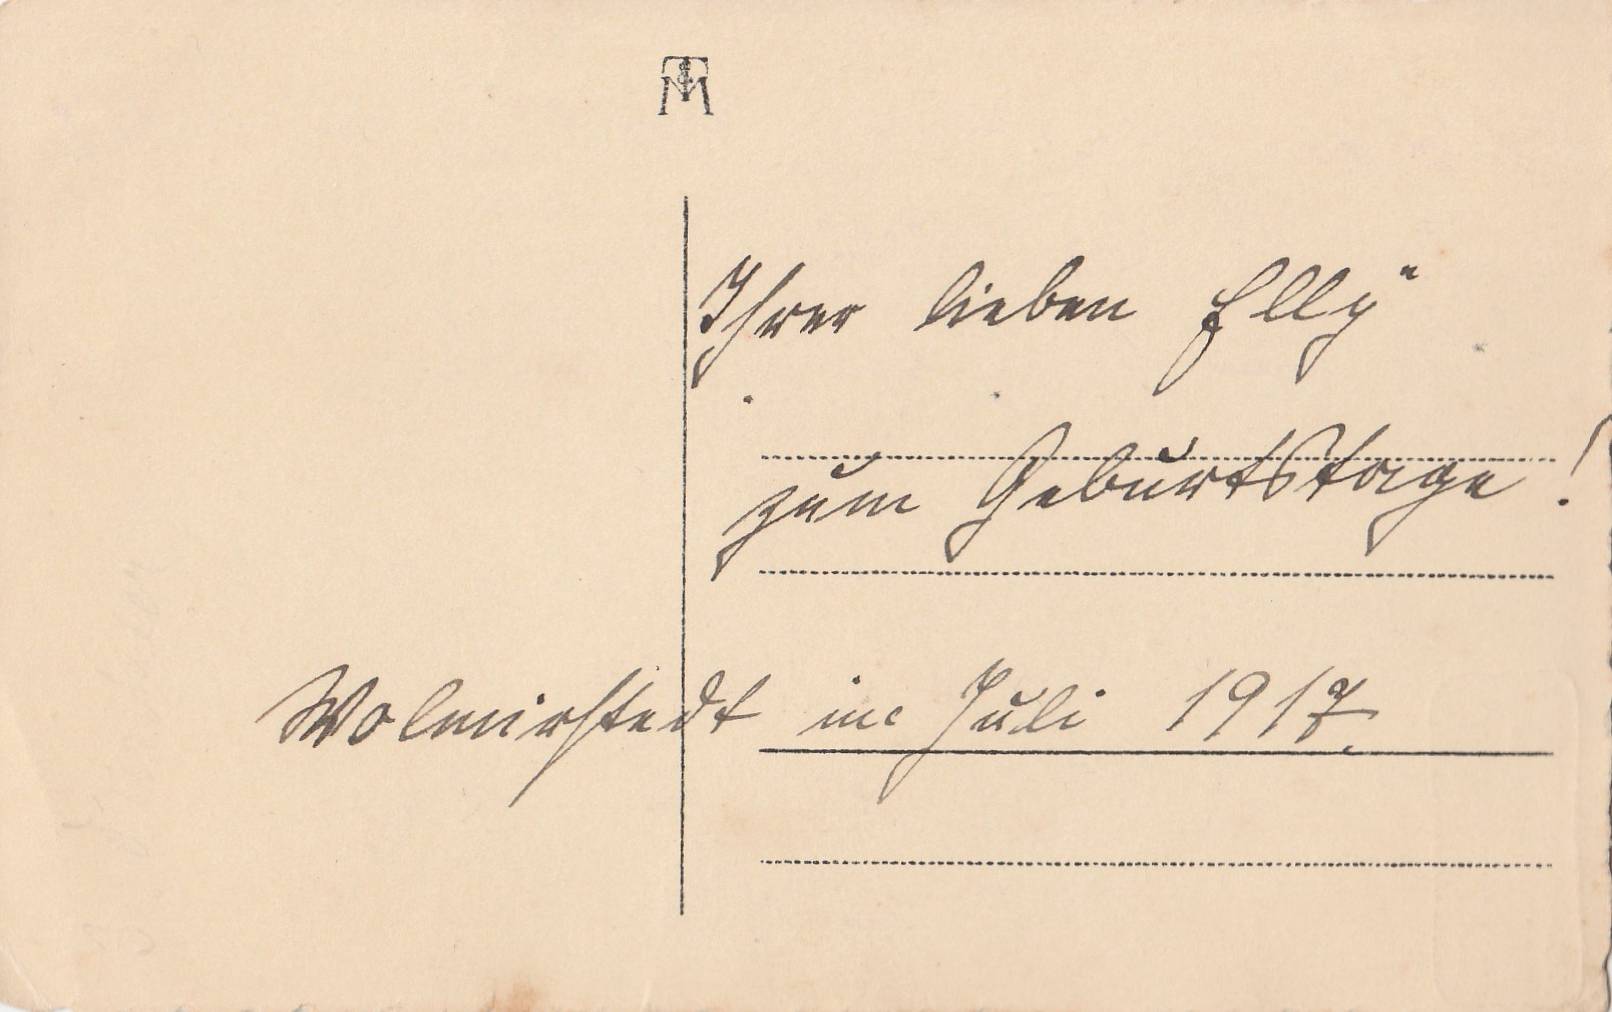 Ihrer lieben Elly
zum Geburtstage!
Wolmirstedt im Juli 1917.